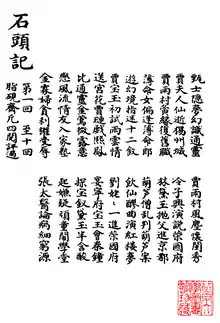 石頭記
甄士隱夢幻識通靈 賈雨村風塵懷閨秀
賈夫人仙逝揚州城 冷子興演說榮國府
賈雨村夤緣復舊職 林黛玉拋父進京都
薄命女偏逢薄命郎 葫芦僧乱判葫芦案
遊幻境指迷十二釵 飲仙醪曲演紅樓夢
賈宝玉初試雨雲情 劉姥〻一進榮國府
送宮花賈璉戲熙鳳 宴寧府宝玉會秦鐘
比通靈金鶯微露意 探宝釵黛玉半含酸
戀風流情友入家塾 起嫌疑頑童鬧學堂
金寡婦貪利權受辱 張太醫論病細窮源
第一回 至十回
脂硯齋凡四閱評過